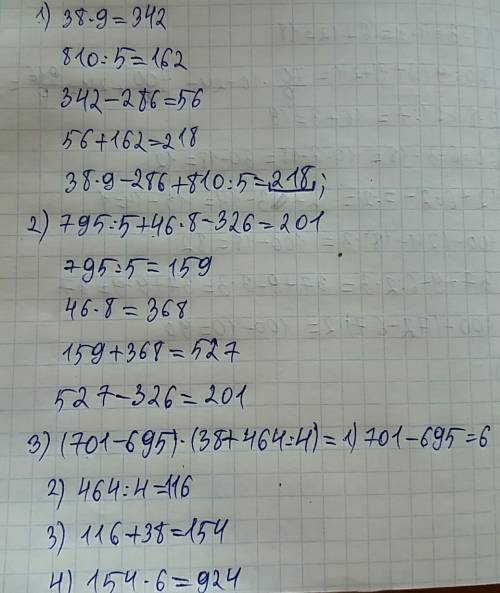 1) 38·9=342
810:5=162
342-286=56
56+162=218
38·9-286+810:5=218;
2) 795:5+46·8-326=201
795:5=159
46·8=368
159+368=527
527-326=201
3) (701-695)·(38+464:4)=1) 701-695=6
2) 464:4=116
3) 116+38=154
4) 154·6=924